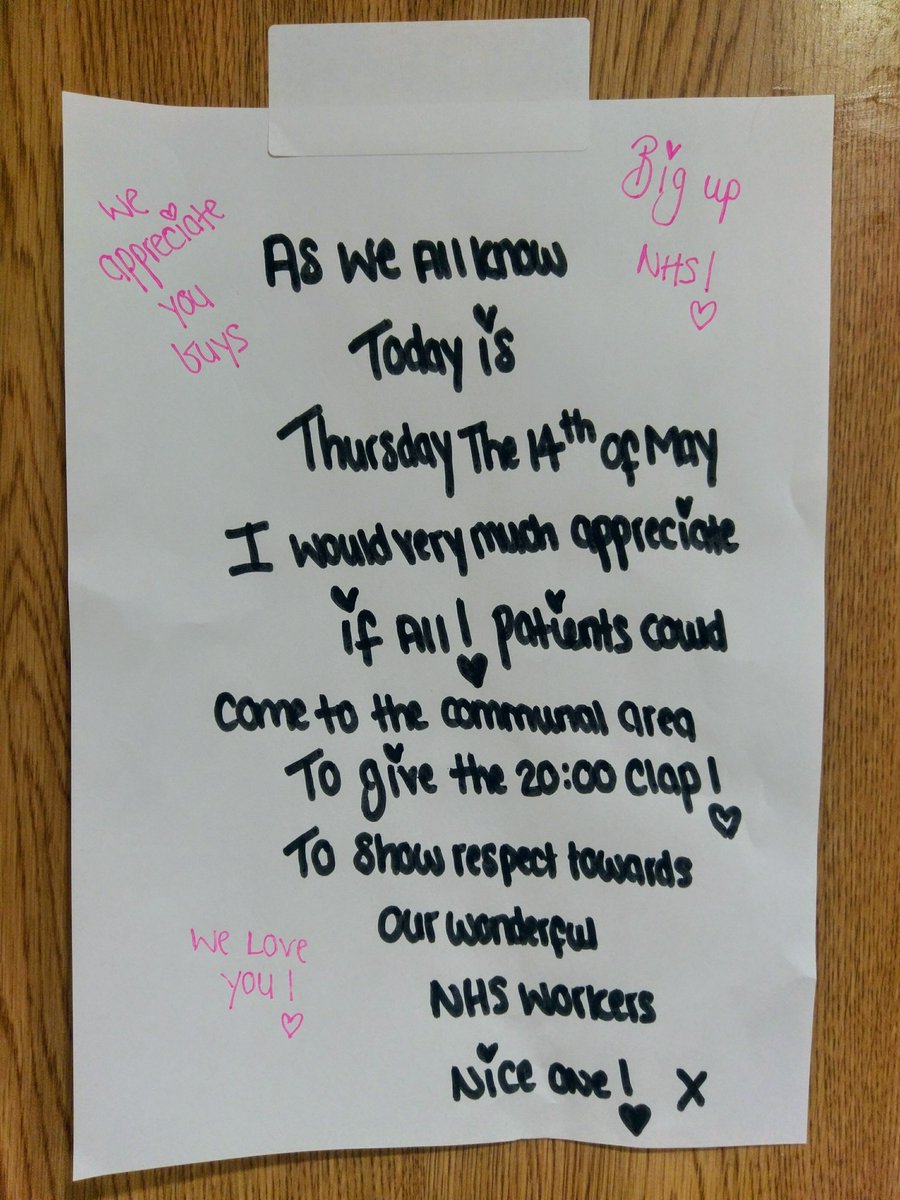 We
appreciate
you
guys
Big up
NHS!
As We All know
Today is
Thursday The 14th of May
I would very much appreciate
if All! patients could
come to the communal area
To give the 20:00 clap!
To show respect towards
our wonderful
NHS workers
Nice one! X
We Love
you!